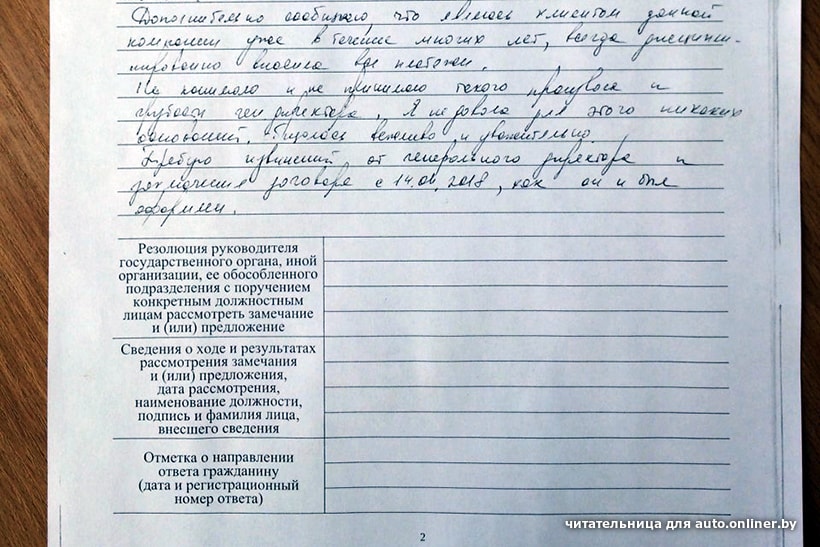 Дополнительно сообщаю, что являюсь клиентом данной
компании уже в течение многих лет, всегда дисципли-
нированно вносила все платежи.
не принимаю такого произвола и
грубости ген.директора. Я не давала для этого никаких
оснований. вежливо и уважительно.
Требую извинений от генерального директора и
заключения договора с 14.01.2018, как он и был
оформлен.
Резолюция руководителя
государственного органа, иной
организации, ее обособленного
подразделения с поручением
конкретным должностным
лицам рассмотреть замечание
и (или) предложение
Сведения о ходе и результатах
рассмотрения замечания
и (или) предложения,
дата рассмотрения,
наименование должности,
подпись и фамилия лица,
внесшего сведения
Отметка о направлении
ответа гражданину
(дата и регистрационный
номер ответа)
2
читательница для auto.onliner.by